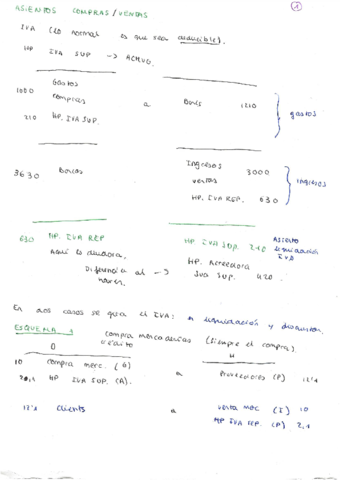 ASIENTOS COMPRAS/VENTAS
1
IVA (lo normal es que sea deducible).
HP IVA SUP -> ACTIVO.
Gastos
1000 compras a Bancs 1210
210 HP. IVA SUP.
gastos
Ingresos 3000
3630 Bancs ventas
HP. IVA REP. 630
ingresos
630 HP. IVA REP HP IVA SUP. 210 ASIENTO
liquidación
IVA
Aquí es deudora. HP. Acreedora
Diferencia al -> IVA SUP. 420.
haber.
En dos casos se usa el IVA: liquidación y
ESQUEMA compra mercaderías (siempre el compra)
D crédito H
10 compra merc. (G) a Proveedores (P) 12'1
2,1 HP IVA SUP. (A).
12'1 clients a venta merc (I) 10
HP IVA REP. (P) 2,1